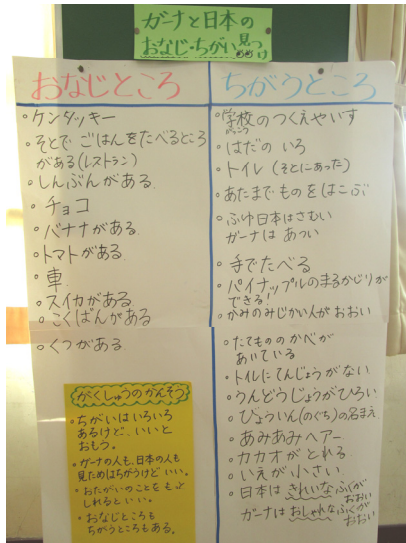 ガーナと日本の
おなじ・ちがい見つけ
おなじところ
ケンタッキー
そとで ごはんをたべるところ
がある(レストラン)
しんぶんがある
チョコ
バナナがある
トマトがある
車
スイカがある
こくばんがある
くつがある
がくしゅうのかんそう
ちがいはいろいろ
あるけど、いいと
おもう。
ガーナの人も、日本の人も
見ためはちがうけどいい。
おたがいのことを
しれるといい。
おなじところも
ちがうところもある。
ちがうところ
学校のつくえやいす
はだの いろ
トイレ(そとにあった)
あたまでものをはこぶ
ふゆ日本はさむい
ガーナは あつい
手でたべる
パイナップルのまるかじりが
できる!
かみのみじかい人がおおい
たてもののかべが
あいている
トイレにてんじょうがない
うんどうじょうがひろい
びょういん(のぐち)の名まえ
あみあみヘアー
カカオがとれる
いえが小さい
日本は きれいなふくが
おおい
ガーナは おしゃれなふくが
おおい